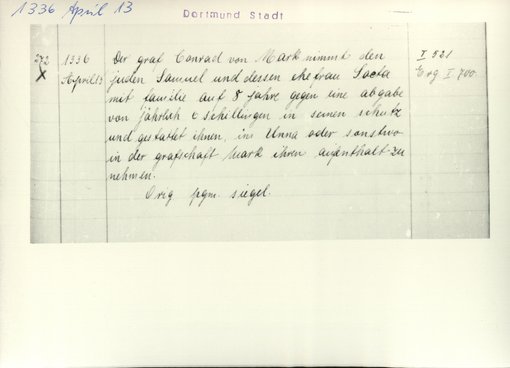 1336 April 13
Dortmund Stadt
272
X
1336
April 13
Der graf Conrad von Mark nimmt den
juden Samuel und dessen ehefrau
mit familie auf 8 jahre gegen eine abgabe
von jährlich c schillingen in seinen schutz
und gestattet ihnen, in Unna oder sonstwo
in der grafschaft Mark ihren aufenthalt zu
nehmen.
Orig pgm. siegel.
I 521
Erg I 700